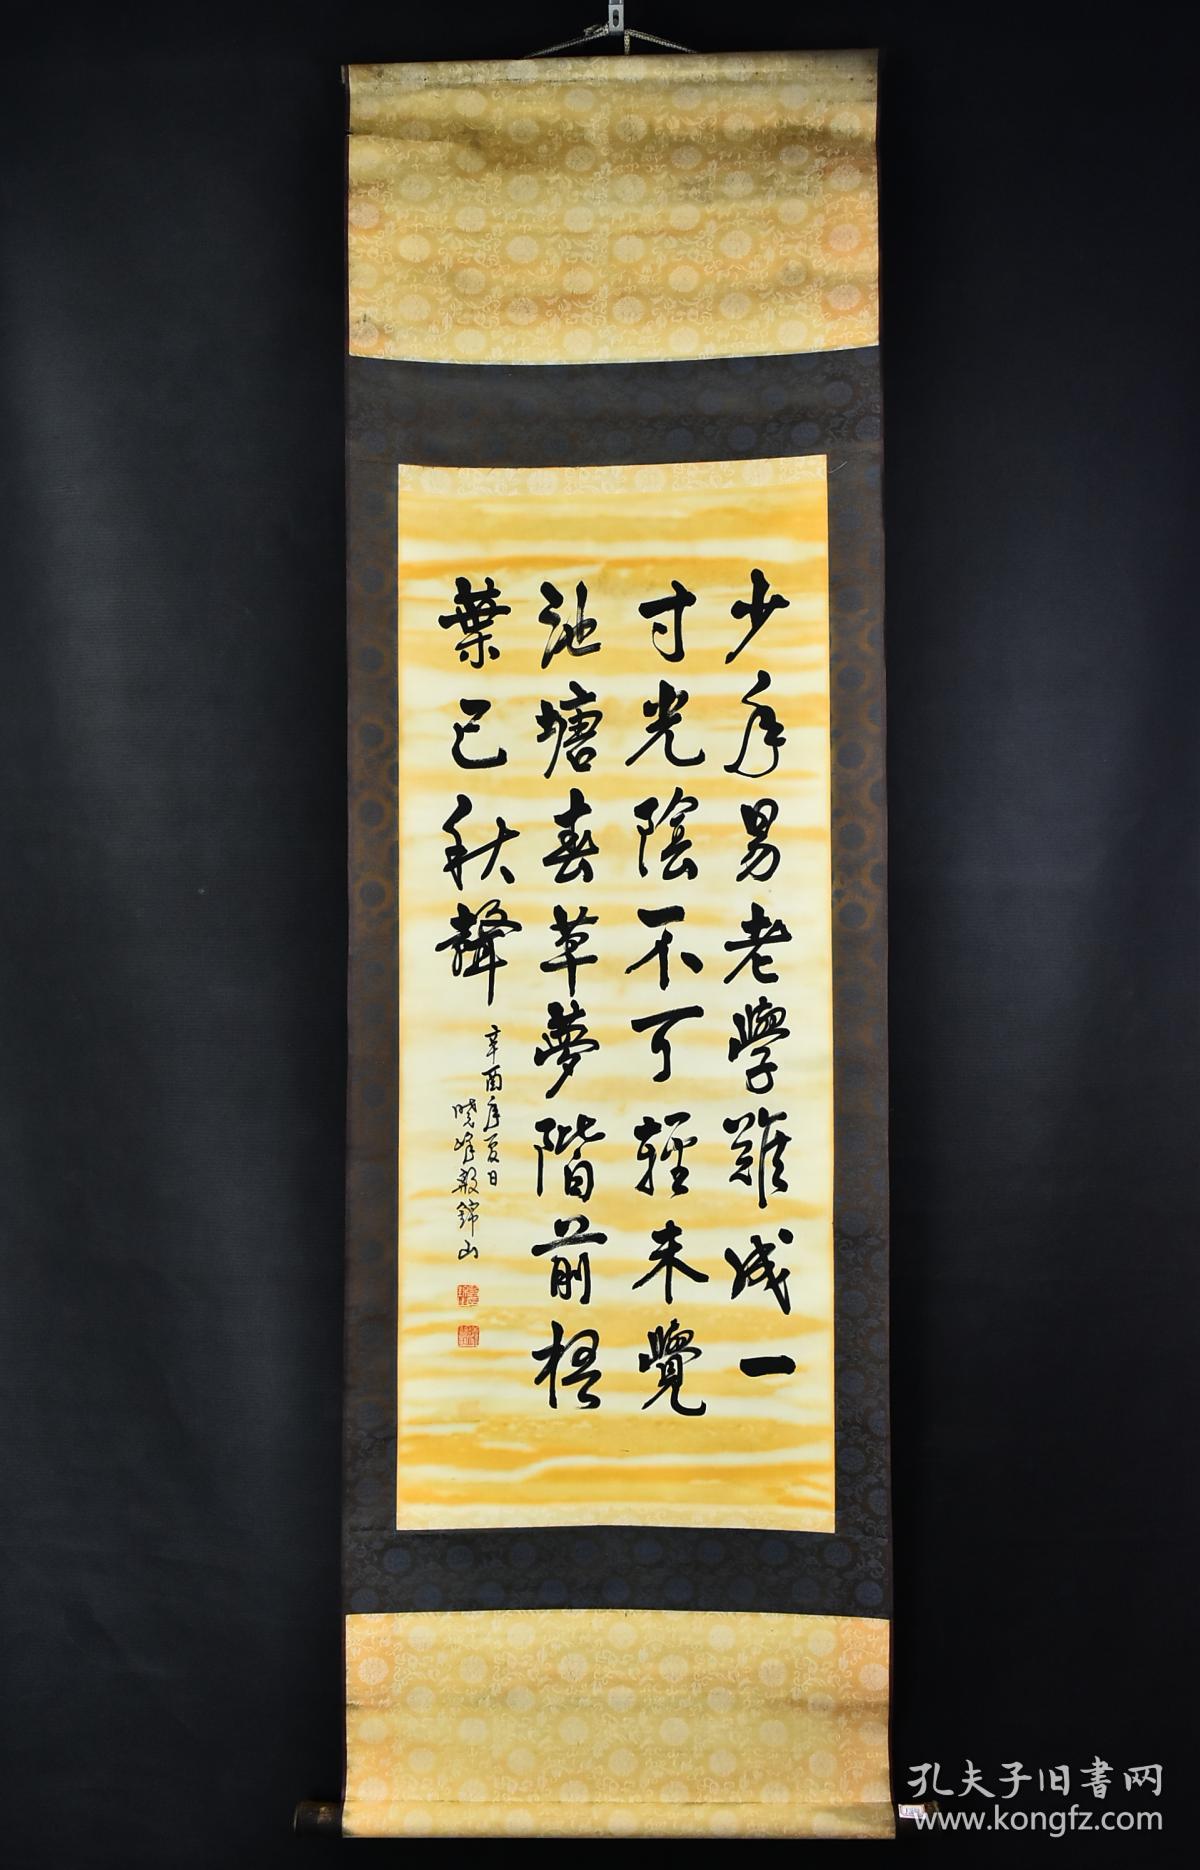 少年易老學難成一
寸光陰不可輕未覺
池塘春草夢階前梧
葉已秋聲
辛酉年夏日
曉峰殷錦山
孔夫子旧書网
www.kongfz.com